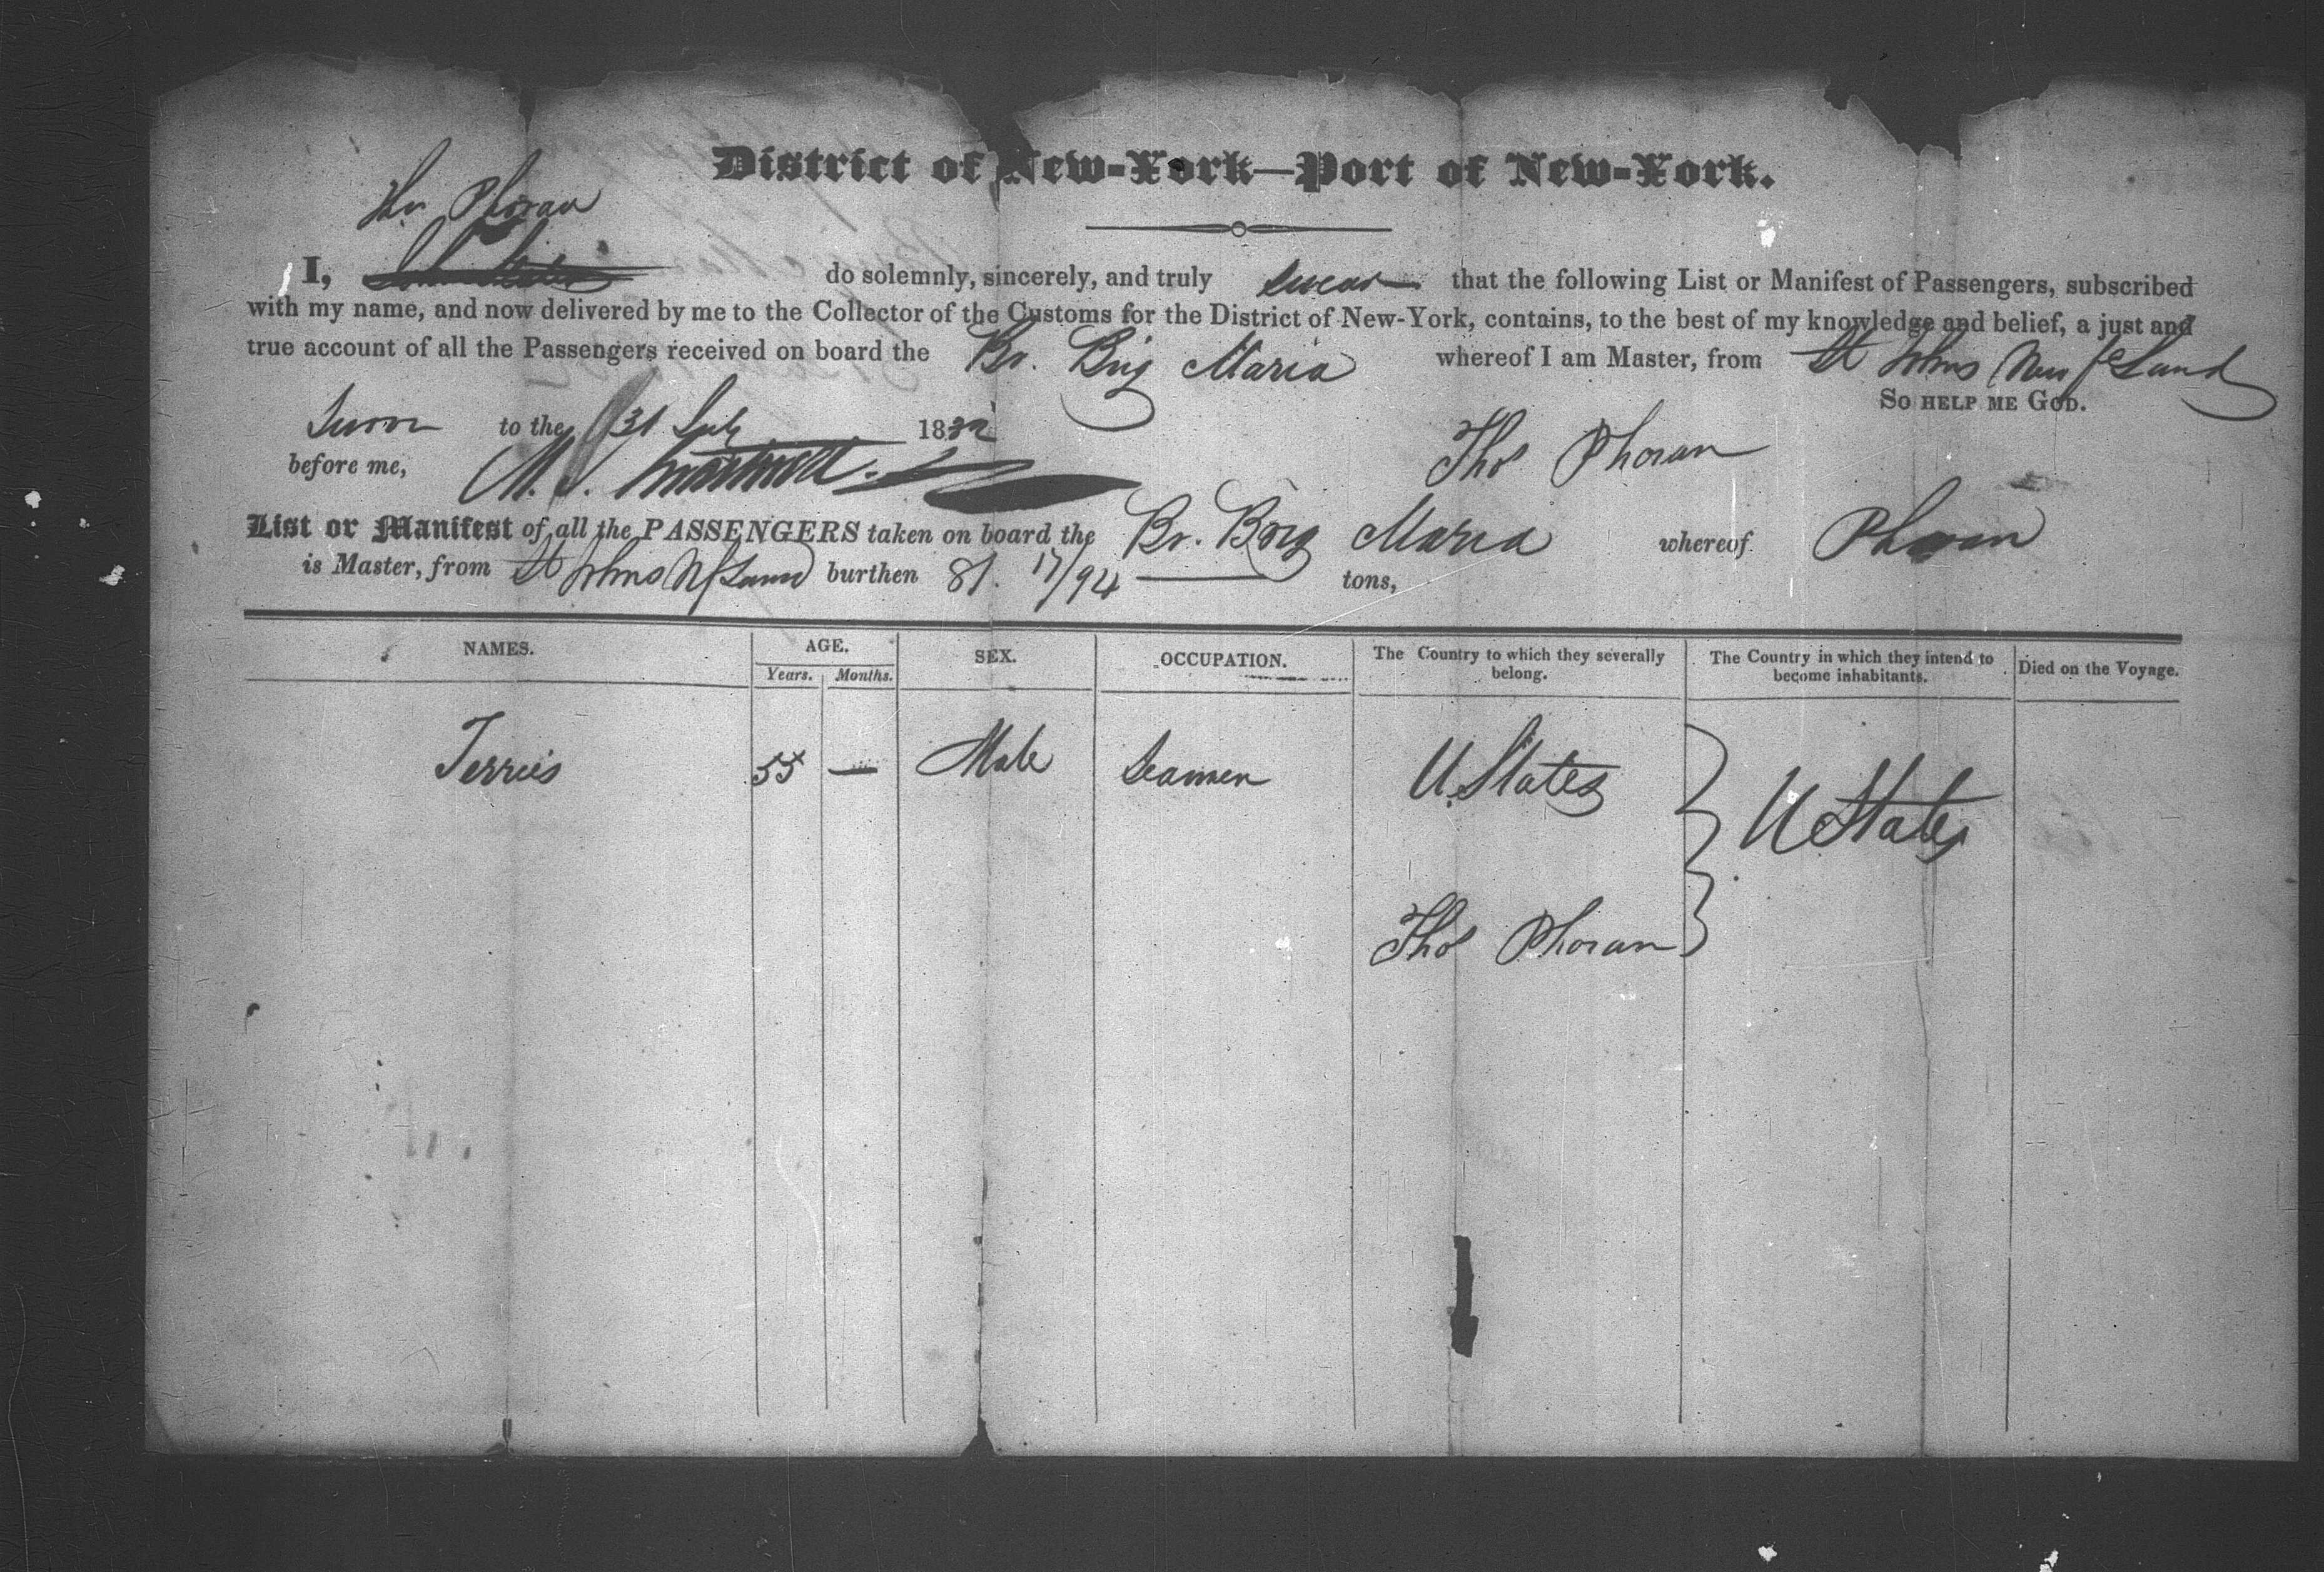 District of New-York—Port of New-York.
Phoran
I, do solemnly, sincerely, and truly swear that the following List or Manifest of Passengers, subscribed
with my name, and now delivered by me to the Collector of the Customs for the District of New-York, contains, to the best of my knowledge and belief, a just and
true account of all the Passengers received on board the Br. Brig Maria whereof I am Master, from St Johns New fLand
So help me God.
Sworn to the 31 July 1832
before me, Thos Phoran
List or Manifest of all the PASSENGERS taken on board the Br. Brig Maria whereof Phoran
is Master, from St Johns NfLand burthen 81. 17/94 tons,
NAMES. AGE. SEX. OCCUPATION. The Country to which they severally belong. The Country in which they intend to become inhabitants. Died on the Voyage.
Years. Months.
55 — Male Seamen U. States U States
Thos Phoran